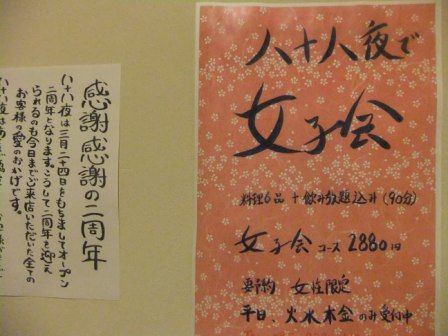 感謝感謝の二周年
八十八夜は三月二十四日をもちましてオープン
二周年となります。こうして二周年を迎え
られるのも今日までご来店いただいた全ての
お客様の愛のおかげです。
八十八夜で
女子会
料理6品 + 飲み放題込み (90分)
女子会コース 2880円
要予約 女性限定
平日、火水木金のみ受付中